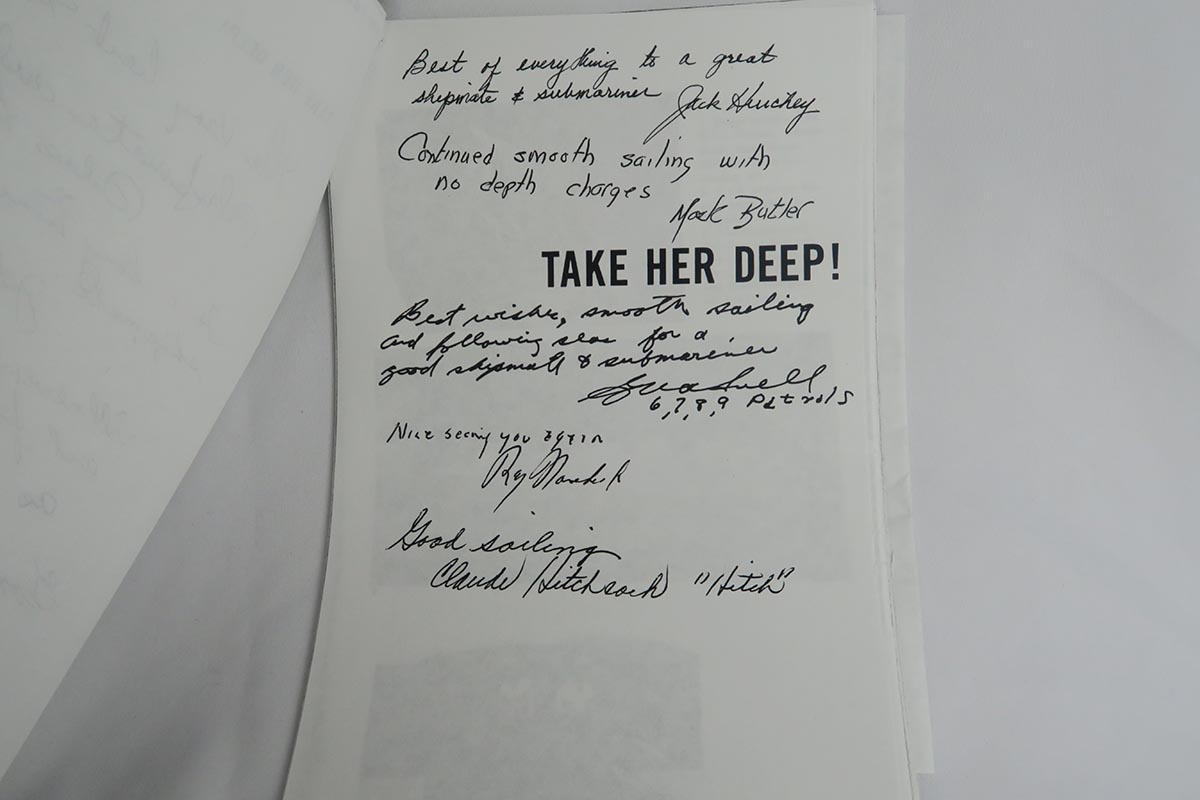 Best of everything to a great
shipmate & submariner Jack
Continued smooth sailing with
no depth charges
Mack Butler
TAKE HER DEEP!
Best wishes, smooth sailing
and following seas for a
good shipmate & submariner
6,7,8,9 Patrols
Nice seeing you again
Ray
Good sailing
Claude Hitchcock "Hitch"